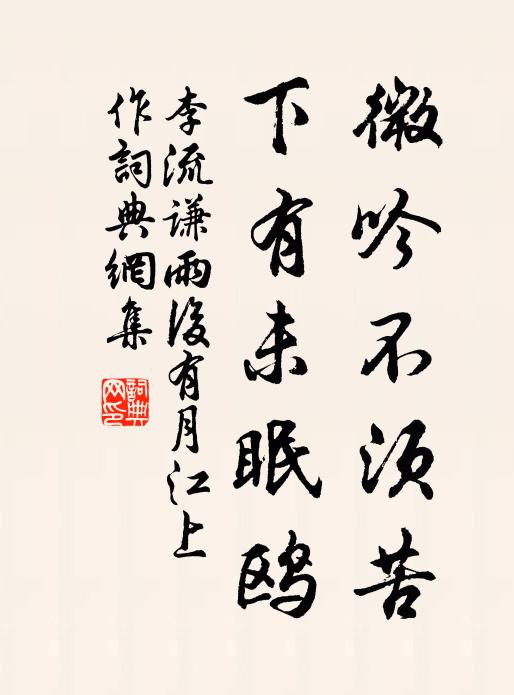 微吟不須苦
下有未眠鸥
李流謙雨後有月江上
作詞典網集
詞典网印